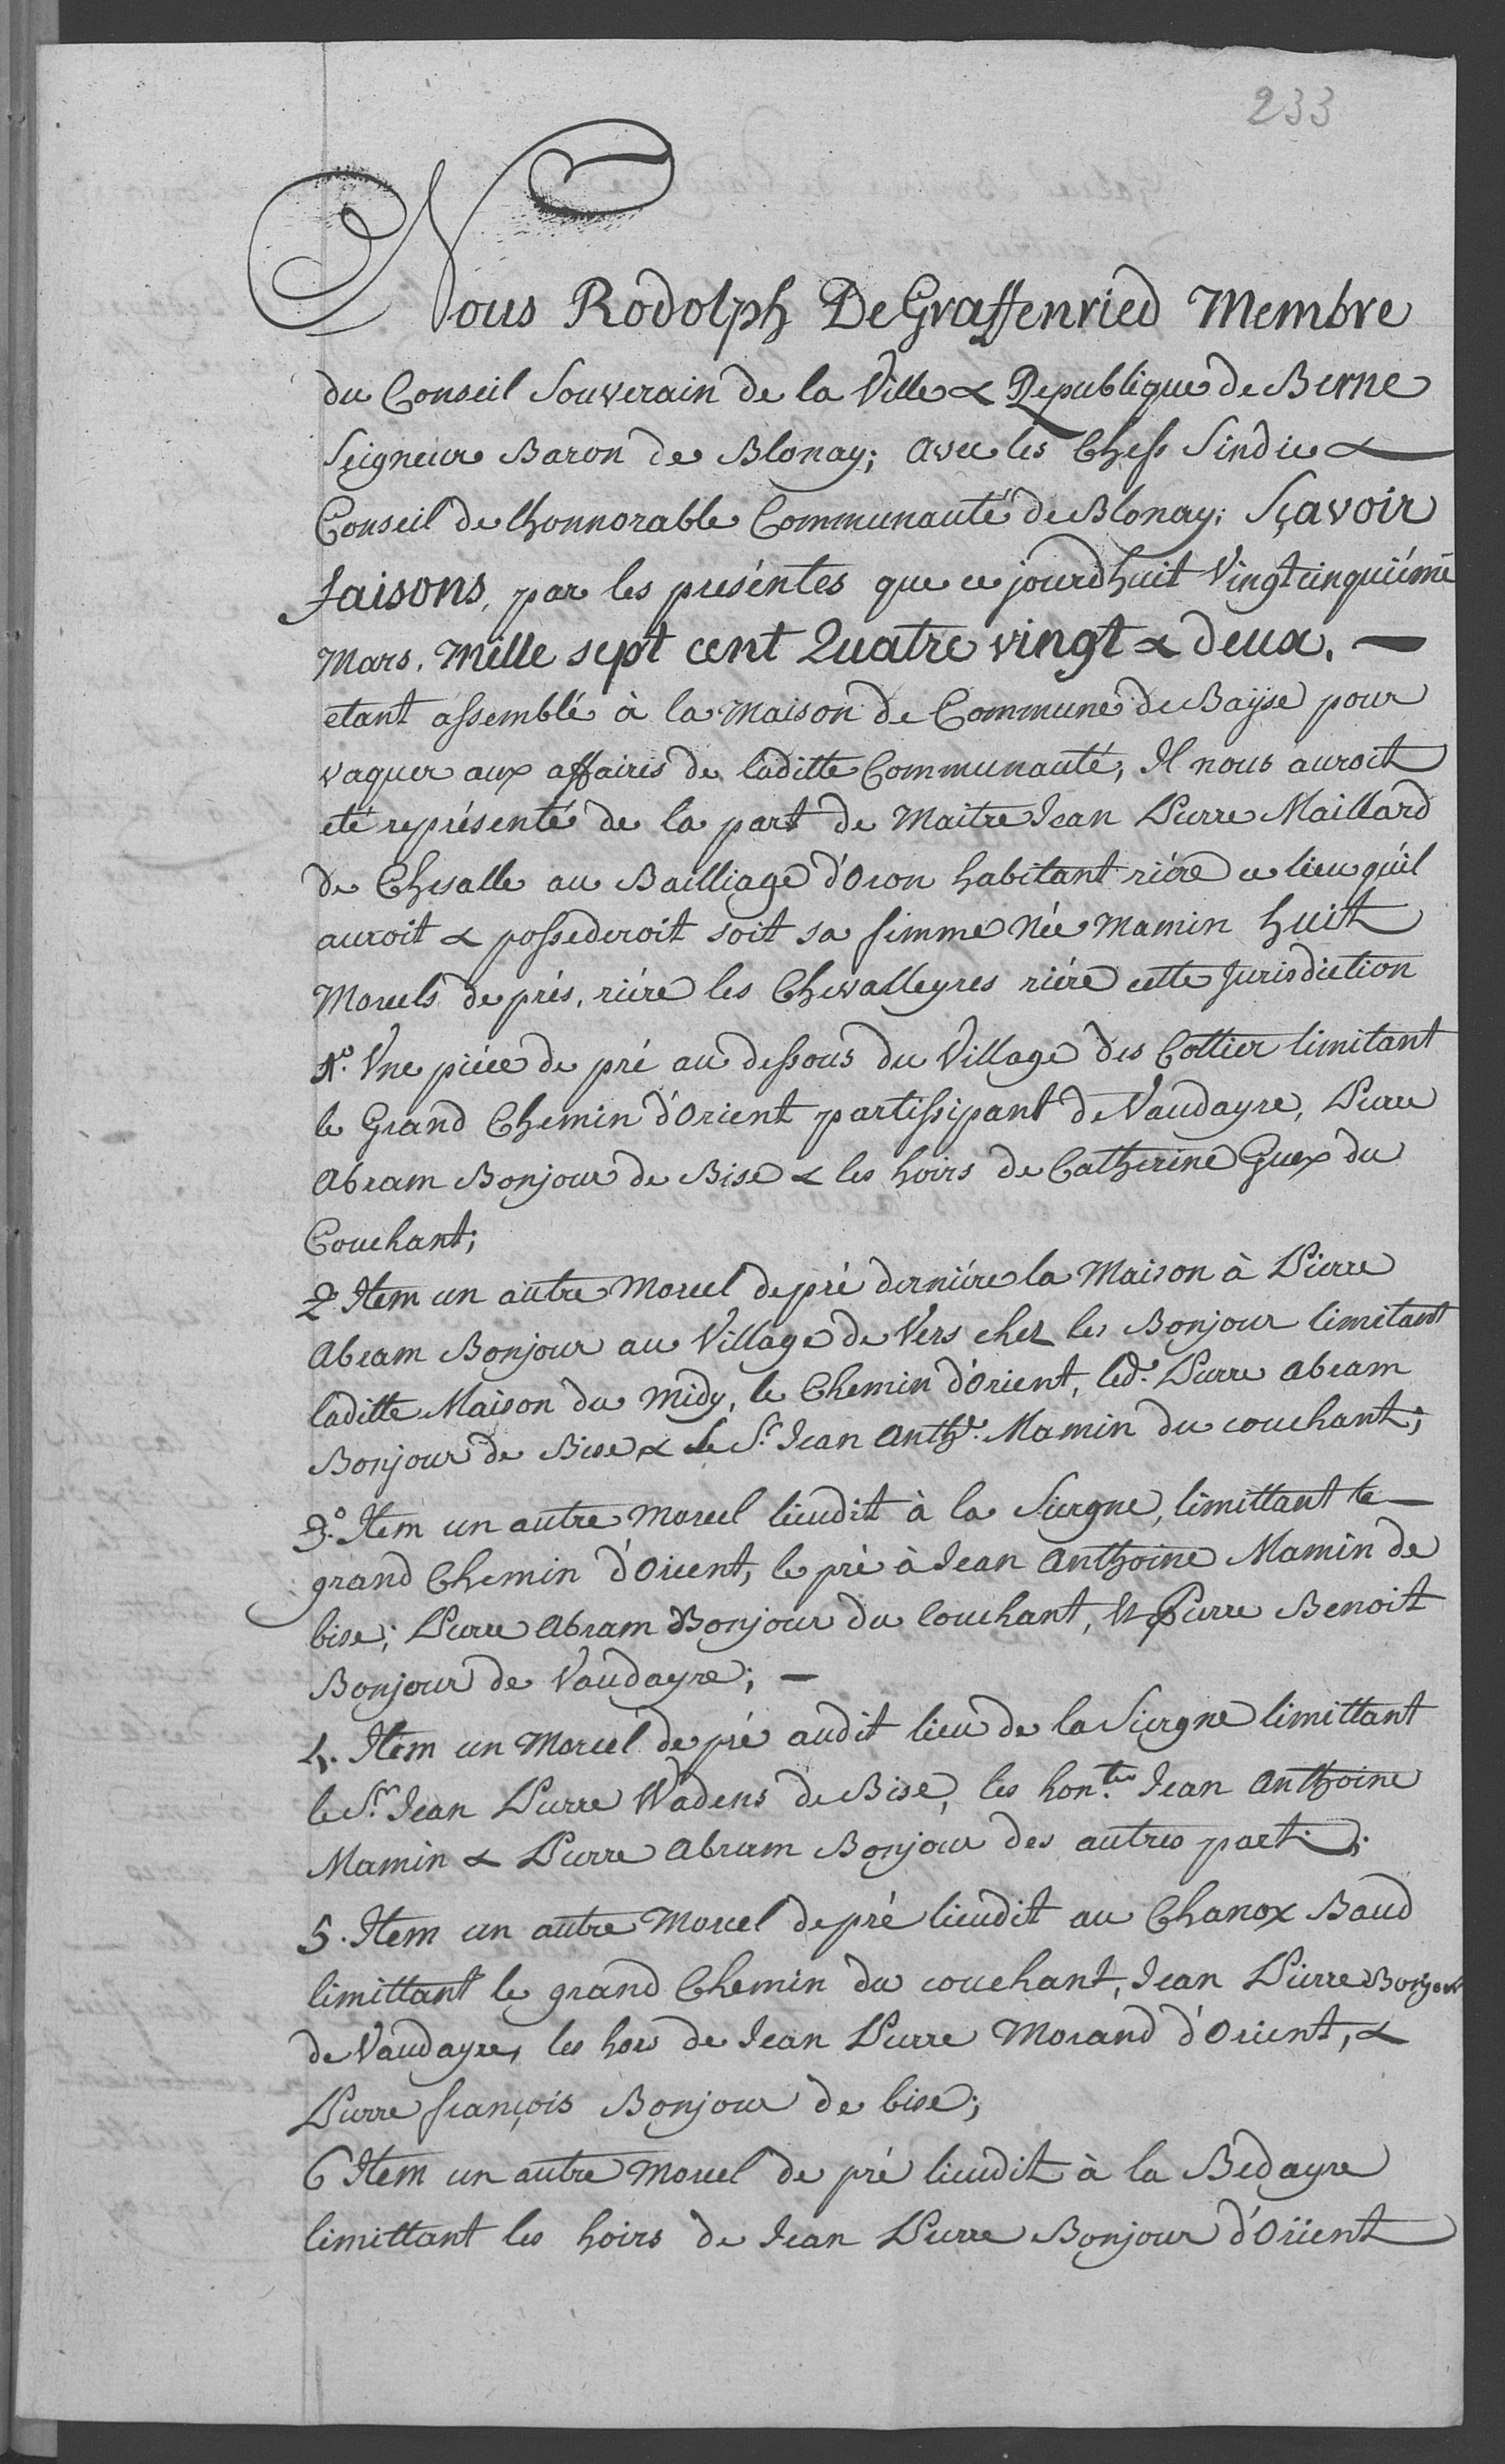 233
Nous Rodolph De Graffenried Membre
du Conseil Souverain de la Ville & Republique de Berne
Seigneur Baron de Blonay; avec les Chefs Sindic &
Conseil de lhonnorable Communauté de Blonay; Sçavoir
faisons, par les présentes que ce jourdhuit Vingtcinquiéme
Mars, Mille sept cent Quatre vingt & deux. —
etant assemblé à la Maison de Commune de Bayse pour
vaquer aux affaires de laditte Communauté, Il nous auroit
eté représenté de la part de Maitre Jean Pierre Maillard
de Chesalle au Bailliage d'Oron habitant riére ce lieu qu'il
auroit & possederoit soit sa femme Née Mamin huit
Morcels de prés, riére les Chevalleyres riére cette Jurisdiction
1º. Une piéce de pré au dessous du Village des Cottier limitant
le Grand Chemin d'Orient partissipant de Vaudayre, Pierre
Abram Bonjour de Bise & les hoirs de Catherine Guex du
Couchant;
2º Item un autre Morcel de pré derniére la Maison à Pierre
Abram Bonjour au Village de Vers chez les Bonjour limitant
laditte Maison du Midy, le Chemin d'Orient, led.t Pierre abram
Bonjour de Bise & Le S.r Jean Anth.e Mamin du couchant;
3.º Item un autre Morcel lieudit à la Siergne, limittant le —
grand Chemin d'Orient, le pré à Jean Anthoine Mamin de
bise; Pierre Abram Bonjour du Couchant, & Pierre Benoit
Bonjour de Vaudayre; —
4. Item un Morcel de pré audit lieu de la Siergne limittant
le S.r Jean Pierre Wadens de Bise, les hon.tes Jean Anthoine
Mamin & Pierre Abram Bonjour des autres part;
5. Item un autre Morcel de pré lieudit au Chanox Baud
limittant le grand Chemin du couchant, Jean Pierre Bonjour
de Vaudayre, les hoirs de Jean Pierre Morand d'Orient, &
Pierre françois Bonjour de bise;
6 Item un autre Morcel de pré lieudit à la Bedayre
limittant les hoirs de Jean Pierre Bonjour d'Orient